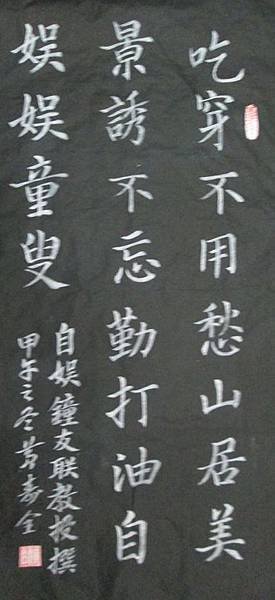 吃穿不用愁山居美
景誘不忘勤打油自
娱娱童叟
自娱鐘友联教授撰
甲午之冬